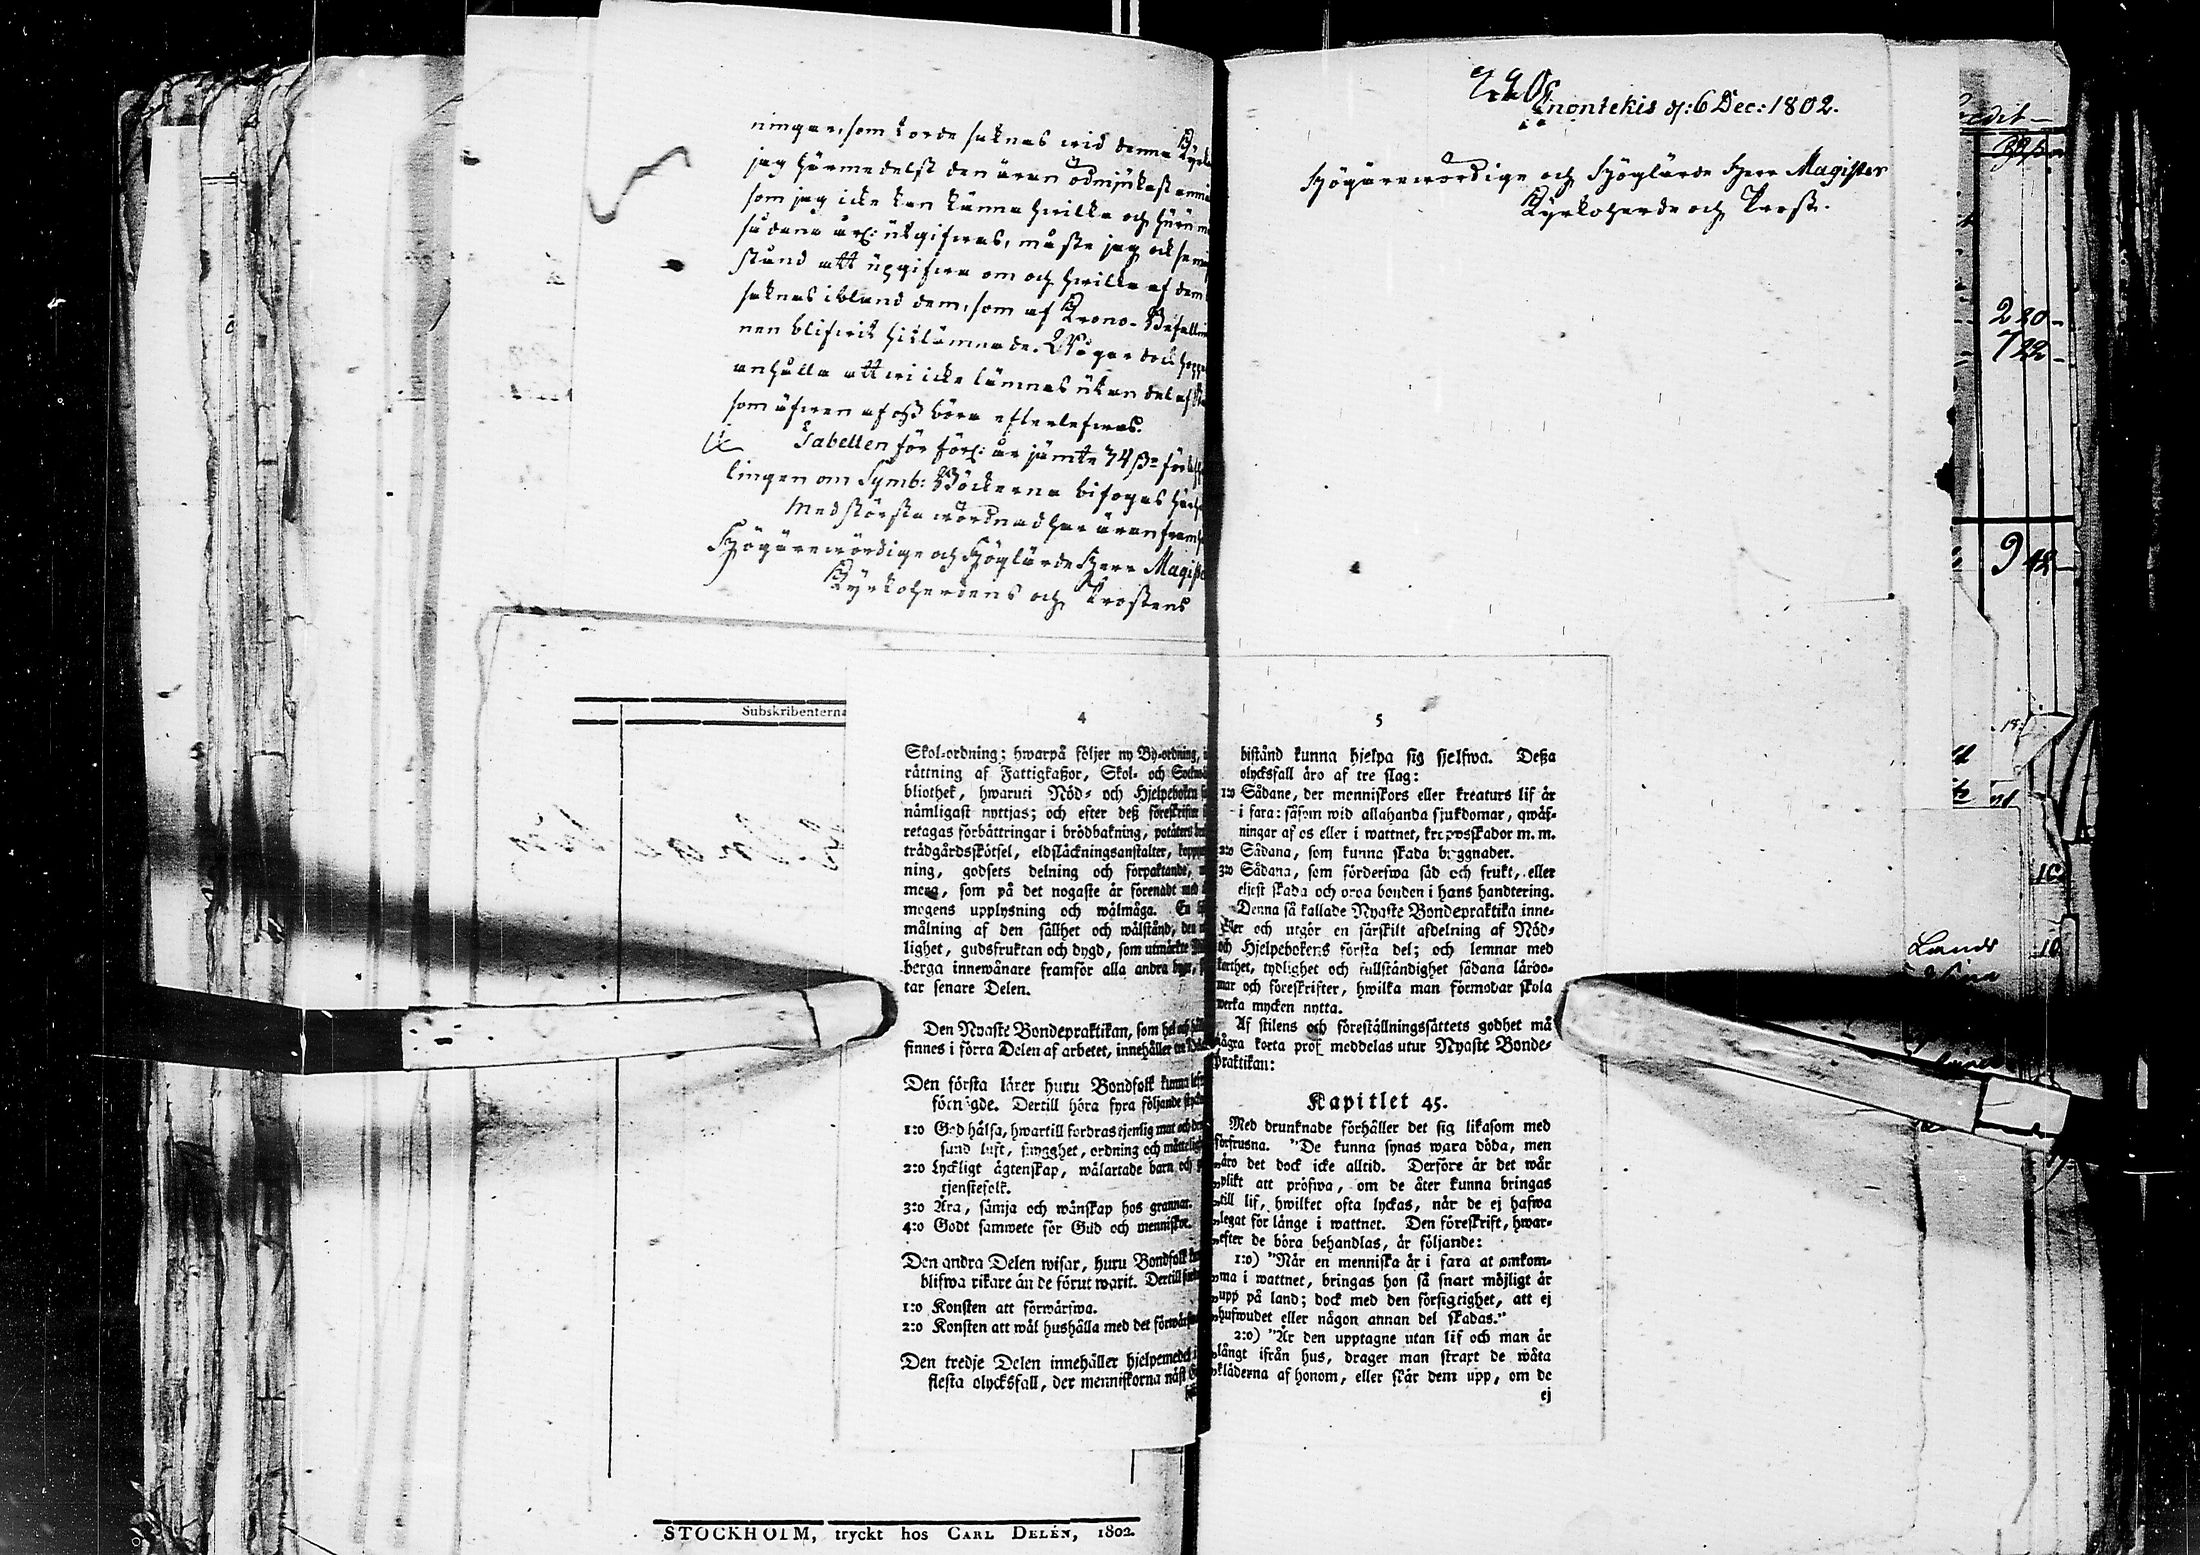 ningar, som torde saknas wid denna Kyrk
jag härmedelst den äran ödmjukast anmä
som jag icke kan känna hwilka och huru m
sådana årl: utgifwas, måste jag ock
stånd att upgifwa om och hwilka af dem
saknas ibland dem, som af Krono-Befallni
nen blifwit hitlämnade. Wågar dock
anhålla att wi icke lämnas utan del af
som äfwen af oss böra efterlefwas.
Tabellen för förl: år jämte 74 ß
lingen om Symb: Böckerna bifogas här
Med största wördnad har äran fram
Högärewördige och Höglärde Herr Magist
Kyrkoherdens och Prostens
Enontekis d: 6 Dec: 1802.
Högärewördige och Höglärde Herr Magister
Kyrkoherde och Prost.
220-
722-
942-
Lands
Subskribenterna
4
Skol-ordning; hwarpå följer ny By-ordning, i
rättning af Fattigkaßor, Skol- och Sockne
bliothek, hwaruti Nöd- och Hjelpeboken
nämligast nyttjas; och efter deß föreskrifter
retagas förbättringar i brödbakning, potäters
trädgårdsskötsel, eldsläckningsanstalter, koppy
ning, godsets delning och förpaktande,
mera, som på det nogaste är förenadt med
mogens upplysning och wälmåga. En
målning af den sällhet och wälstånd, den
lighet, gudsfruktan och dygd, som utmärkte
berga innewånare framför alla andra byar,
tar senare Delen.
Den Nyaste Bondepraktikan, som hel och
finnes i förra Delen af arbetet, innehåller tre Delar
Den första lärer huru Bondfolk kunna lef
förnögde. Dertill höra fyra följande stycken
1:o God hälsa, hwartill fordras tjenlig mat och
sund luft, snygghet, ordning och måttelig
2:o Lyckligt ägtenskap, wälartade barn och
tjenstefolk.
3:o Ära, sämja och wänskap hos grannar.
4:o Godt samwete för Gud och menniskor.
Den andra Delen wisar, huru Bondfolk
blifwa rikare än de förut warit. Dertill
1:o Konsten att förwärfwa.
2:o Konsten att wäl hushålla med det förwärf
Den tredje Delen innehåller hjelpemedel i
flesta olycksfall, der menniskorna näst G
5
bistånd kunna hjelpa sig sjelfwa. Deßa
olycksfall äro af tre slag:
1:o Sådane, der menniskors eller kreaturs lif är
i fara: såsom wid allahanda sjukdomar, qwäf-
ningar af os eller i wattnet, kroppsskador m. m.
2:o Sådana, som kunna skada byggnader.
3:o Sådana, som förderfwa säd och frukt, eller
eljest skada och oroa bonden i hans handtering.
Denna så kallade Nyaste Bondepraktika inne-
håller och utgör en särskilt afdelning af Nöd-
och Hjelpebokens första del; och lemnar med
korthet, tydlighet och fullständighet sådana lärdo-
mar och föreskrifter, hwilka man förmodar skola
werka mycken nytta.
Af stilens och föreställningssättets godhet må
några korta prof meddelas utur Nyaste Bonde-
praktikan:
Kapitlet 45.
Med drunknade förhåller det sig likasom med
förfrusna. "De kunna synas wara döda, men
"äro det dock icke alltid. Derföre är det wår
"plikt att pröfwa, om de åter kunna bringas
"till lif, hwilket ofta lyckas, när de ej hafwa
"legat för länge i wattnet. Den föreskrift, hwar-
"efter de böra behandlas, är följande:
1:o) "När en menniska är i fara at omkom-
"ma i wattnet, bringas hon så snart möjligt är
"upp på land; dock med den försigtighet, att ej
"hufwudet eller någon annan del skadas."
2:o) "Är den upptagne utan lif och man är
"långt ifrån hus, drager man straxt de wåta
"kläderna af honom, eller skär dem upp, om de
ej
STOCKHOLM, tryckt hos CARL DELÉN, 1802.